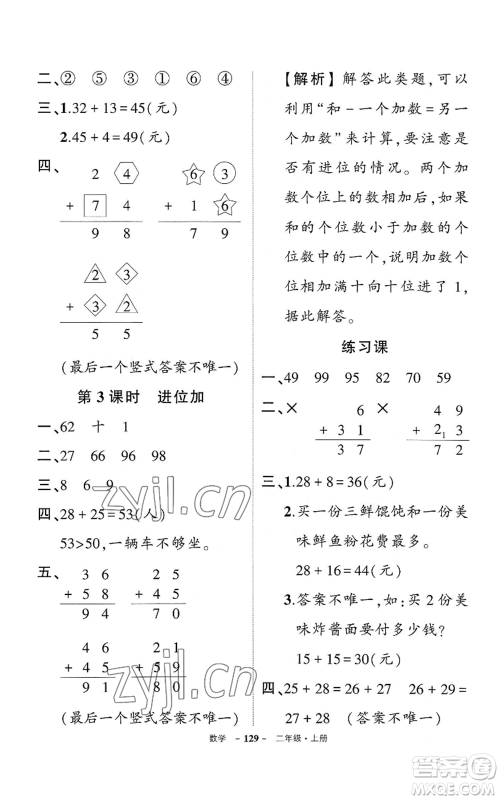 二、② ⑤ ③ ① ⑥ ④
三、1.32+13=45(元)
2.45+4=49(元)
四、
2 4
+ 7 4
9 8
6 3
+ 1 6
7 9
2 3
+ 3 2
5 5
(最后一个竖式答案不唯一)
第 3 课时 进位加
一、62 十 1
二、27 66 96 98
三、8 6 9
四、28+25=53(人)
53>50,一辆车不够坐。
五、
3 6
+ 5 8
9 4
2 5
+ 4 5
7 0
4 6
+ 4 5
9 1
2 1
+ 5 9
8 0
(最后一个竖式答案不唯一)
【解析】解答此类题,可以
利用“和-一个加数=另一
个加数”来计算,要注意是
否有进位的情况。两个加
数个位上的数相加后,如果
和的个位数小于加数的个
位数中的一个,说明加数个
位相加满十向十位进了 1,
据此解答。
练习课
一、49 99 95 82 70 59
二、×
6
+ 3 1
3 7
×
4 9
+ 2 1 3
7 2
三、1.28+8=36(元)
2.买一份三鲜馄饨和一份美
味鲜鱼粉花费最多。
28+16=44(元)
3.答案不唯一,如:买 2 份美
味炸酱面要付多少钱?
15+15=30(元)
四、25+28=26+27 26+29=
27+28 (答案不唯一)
数学 - 129 - 二年级·上册
zyjl.cn
zyjl.cn
答案圈
MXQE.COM